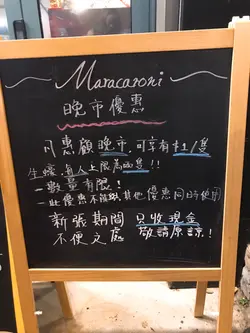 Maracaroni
晚市優惠
凡惠顧晚市,可享有$1/隻
生蠔,每人上限為兩隻!!
-數量有限!
-此優惠不能與其他優惠同時使用
新張期間 只收現金
不便之處 敬請原諒!